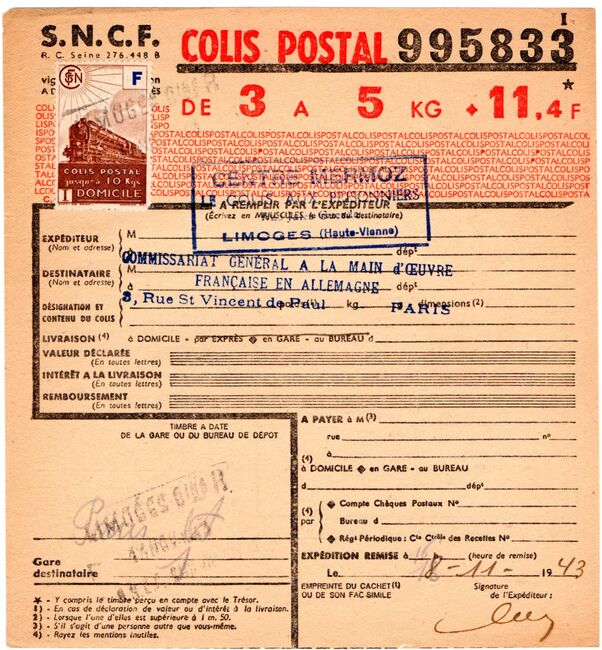 I
S.N.C.F.
R. C. Seine 276.448 B
COLIS POSTAL 995833
DE 3 A 5 KG + 11,4 F
SNCF F
COLIS POSTAL
jusqu'à 10 Kgs
I DOMICILE
CENTRE MERMOZ
PRISONNIERS
LIMOGES (Haute-Vienne)
A REMPLIR PAR L'EXPÉDITEUR
(Écrivez en MAJUSCULES le nom du destinataire)
EXPÉDITEUR M
(Nom et adresse) à dépt
COMMISSARIAT GÉNÉRAL A LA MAIN d'ŒUVRE
DESTINATAIRE M
(Nom et adresse) à dépt
FRANÇAISE EN ALLEMAGNE
3, Rue St Vincent de Paul PARIS
DÉSIGNATION ET kg dimensions (2)
CONTENU DU COLIS
LIVRAISON (4) à DOMICILE - par EXPRÈS ◆ en GARE - au BUREAU d
VALEUR DÉCLARÉE
(En toutes lettres)
INTÉRÊT A LA LIVRAISON
(En toutes lettres)
REMBOURSEMENT
(En toutes lettres)
TIMBRE A DATE
DE LA GARE OU DU BUREAU DE DÉPOT
A PAYER à M (3)
rue no
à
(4) à DOMICILE ◆ en GARE - au BUREAU
d dépt
◆ Compte Chèques Postaux No
(4) par Bureau d
◆ Régt Périodique : Cie Ctrôle des Recettes No
LIMOGES
Gare
destinataire
EXPÉDITION REMISE à (heure de remise)
Le 18-11- 1943
EMPREINTE DU CACHET (1)
OU DE SON FAC SIMILE
Signature
de l'Expéditeur :
* - Y compris le timbre perçu en compte avec le Trésor.
1) - En cas de déclaration de valeur ou d'intérêt à la livraison.
2) - Lorsque l'une d'elles est supérieure à 1 m. 50.
3) - S'il s'agit d'une personne autre que vous-même.
4) - Rayez les mentions inutiles.